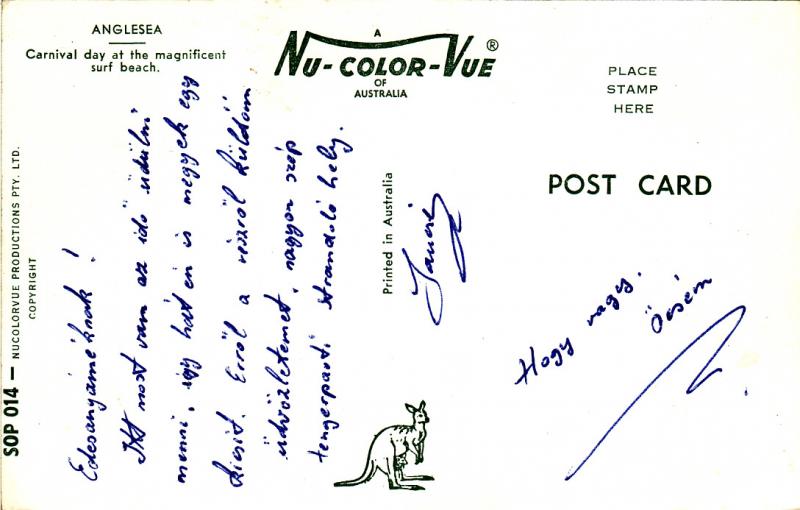 ANGLESEA
Carnival day at the magnificent
surf beach.
A
NU-COLOR-VUE®
OF
AUSTRALIA
PLACE
STAMP
HERE
POST CARD
Printed in Australia
SOP 014 — NUCOLORVUE PRODUCTIONS PTY. LTD.
COPYRIGHT
Édesanyáméknak!
Itt most van az idő üdülni
menni, így hát én is megyek egy
kicsit. Erről a részről küldöm
üdvözletemet, nagyon szép
tengerparti strandoló hely.
Hogy vagy.
Öcsém